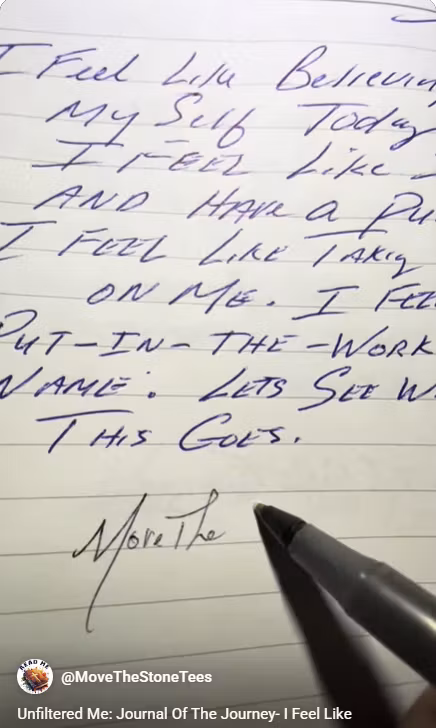 I Feel Like Believin
My Self Today
I FEEL Like I
AND HAve a Pu
I FEEL LIKE TAkig
ON ME. I FEE
PUT-IN-THE-WORK
NAME. LETS SEE W
THIS GOES.
MoveThe
READ ME
@MoveTheStoneTees
Unfiltered Me: Journal Of The Journey- I Feel Like